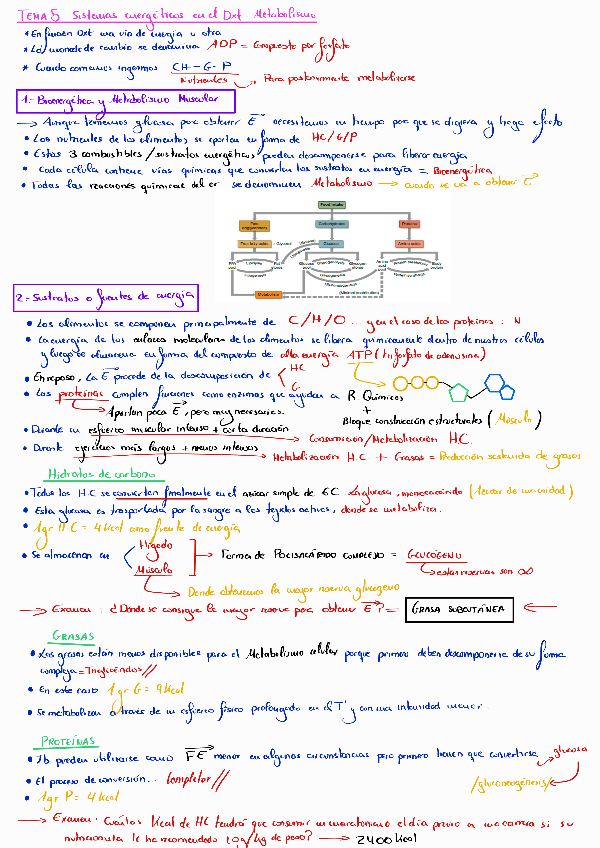 TEMA 5 Sistemas energéticos en el Dxt Metabolismo
* En función Dxt una vía de energía u otra
* La moneda de cambio se denomina ADP = Compuesto por fosfato
* Cuando comemos ingerimos CH-G-P
Nutrientes → Para posteriormente metabolizarse
1.- Bioenergética y Metabolismo Muscular
→ Aunque tenemos glucosa para obtener E necesitamos un tiempo para que se digiera y haga efecto
• Los nutrientes de los alimentos se aportan en forma de HC/G/P
• Estas 3 combustibles/sustratos energéticos pueden descomponerse para liberar energía
• Cada célula contiene vías químicas que convierten los sustratos en energía = Bioenergética
• Todas las reacciones químicas del cr se denominan Metabolismo → cuando se va a obtener E
Food intake
Fats (triglycerides) Carbohydrates Proteins
Free fatty acids + Glycerol Glucose Amino acids
Fat pool Lipolysis Fat stores Glycogenolysis Glycogen stores Amino acid pool Protein synthesis Body protein
Lipogenesis Glycogenesis
Metabolism
2.- Sustratos o fuentes de energía
• Los alimentos se componen principalmente de C/H/O ... y en el caso de las proteínas: N
• La energía de los enlaces moleculares de los alimentos se libera químicamente dentro de nuestras células
y luego se almacena en forma del compuesto de alta energía ATP (trifosfato de adenosina)
• En reposo, la E procede de la descomposición de HC
G
• Las proteínas cumplen funciones como enzimas que ayudan a R Químicas
→ Aportan poca E, pero muy necesarias. +
Bloque construcción estructurales (Músculo)
• Durante un esfuerzo muscular intenso + corta duración
→ Consumición/Metabolización HC.
• Durante ejercicios más largos + menos intensos
→ Metabolización H.C + Grasas = Reducción sustancial de grasas
Hidratos de carbono
• Todos los H.C se convierten finalmente en el azúcar simple de 6C La glucosa, monosacárido (1 azúcar de una unidad)
• Esta glucosa es trasportada por la sangre a los tejidos activos, donde se metaboliza.
• 1gr HC = 4 Kcal como fuente de energía
• Se almacenan en Hígado
Músculo → Forma de POLISACÁRIDO COMPLEJO = GLUCÓGENO
→ estas reservas son ∞
→ Donde obtenemos la mayor reserva glucógeno
→ Examen: ¿Dónde se consigue la mayor reserva para obtener E? = GRASA SUBCUTÁNEA ←
GRASAS
• Las grasas están menos disponibles para el Metabolismo celular porque primero deben descomponerse de su forma
compleja = Triglicéridos //
• En este caso 1 gr G = 9 Kcal
• Se metabolizan a través de un esfuerzo físico prolongado en el T' y con una intensidad menor.
PROTEÍNAS
• Tb pueden utilizarse como FE menor en algunas circunstancias pero primero tienen que convertirse → glucosa
• El proceso de conversión... Completar // /gluconeogénesis/
• 1gr P = 4 Kcal
→ Examen: Cuántas Kcal de HC tendrá que consumir un maratoniano el día previo a una carrera si su
nutricionista le ha recomendado 10g/kg de peso? → 2400 Kcal